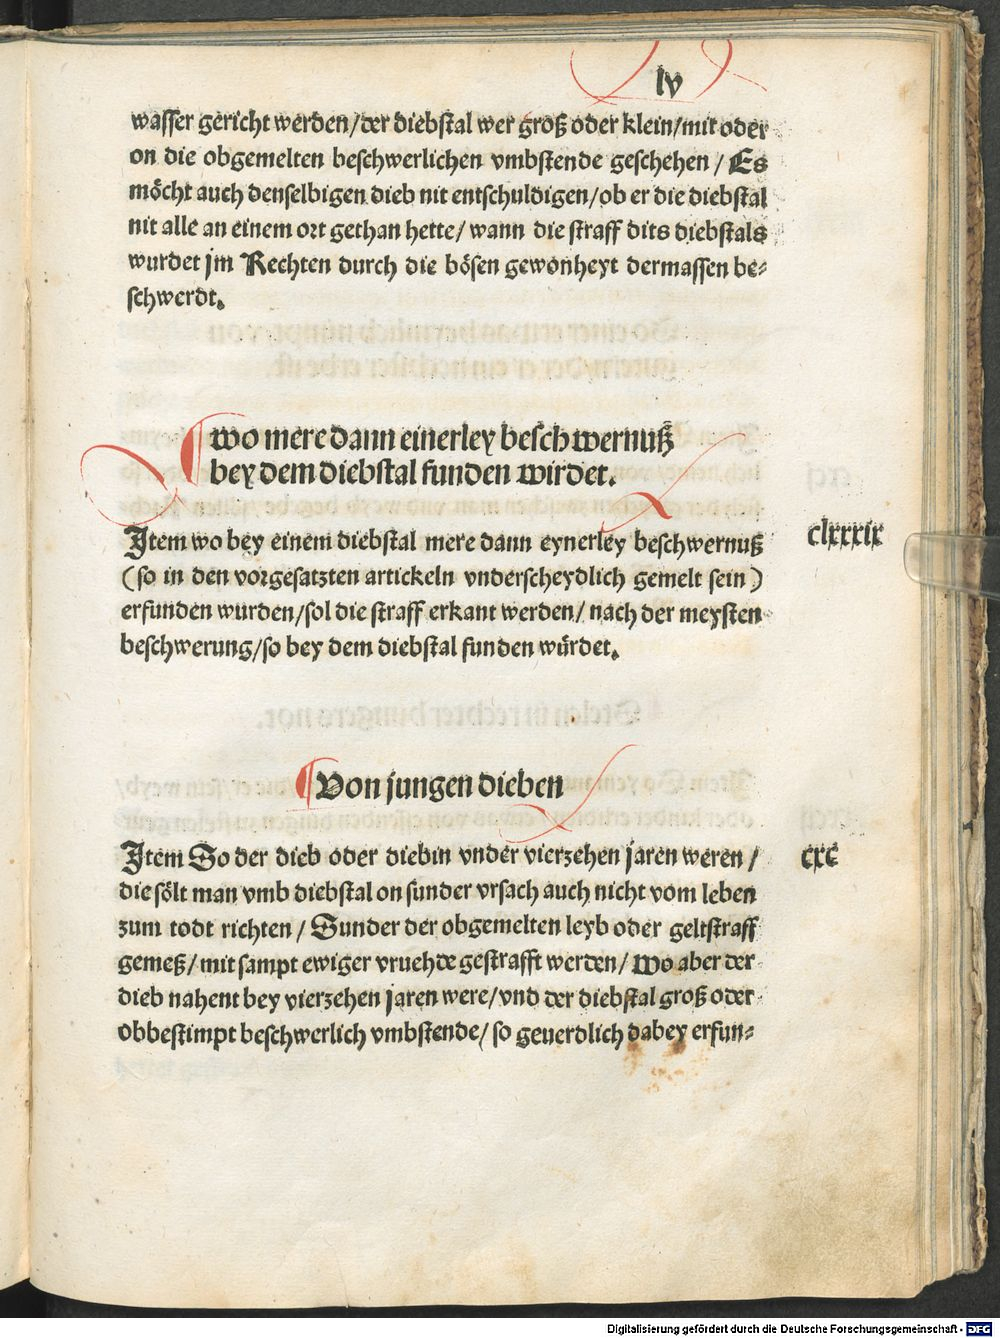 lv
wasser gericht werden/der diebstal wer groß oder klein/mit oder
on die obgemelten beschwerlichen vmbstende geschehen/ Es
möcht auch denselbigen dieb nit entschuldigen/ob er die diebstal
nit alle an einem ort gethan hette/ wann die straff dits diebstals
wurdet jm Rechten durch die bösen gewonheyt dermassen be⸗
schwerdt.
Wo mere dann einerley beschwernuß
bey dem diebstal funden wirdet.
clxxxix
Item wo bey einem diebstal mere dann eynerley beschwernuß
(so in den vorgesatzten artickeln vnderscheydlich gemelt sein)
erfunden wurden/sol die straff erkant werden/ nach der meysten
beschwerung/so bey dem diebstal funden würdet.
Von jungen dieben
cxc
Item So der dieb oder diebin vnder vierzehen jaren weren /
die sölt man vmb diebstal on sunder vrsach auch nicht vom leben
zum todt richten/ Sunder der obgemelten leyb oder geltstraff
gemeß/ mit sampt ewiger vruehde gestrafft werden/ Wo aber der
dieb nahent bey vierzehen jaren were/vnd der diebstal groß oder
obbestimpt beschwerlich vmbstende/ so geuerdlich dabey erfun⸗
Digitalisierung gefördert durch die Deutsche Forschungsgemeinschaft - DFG